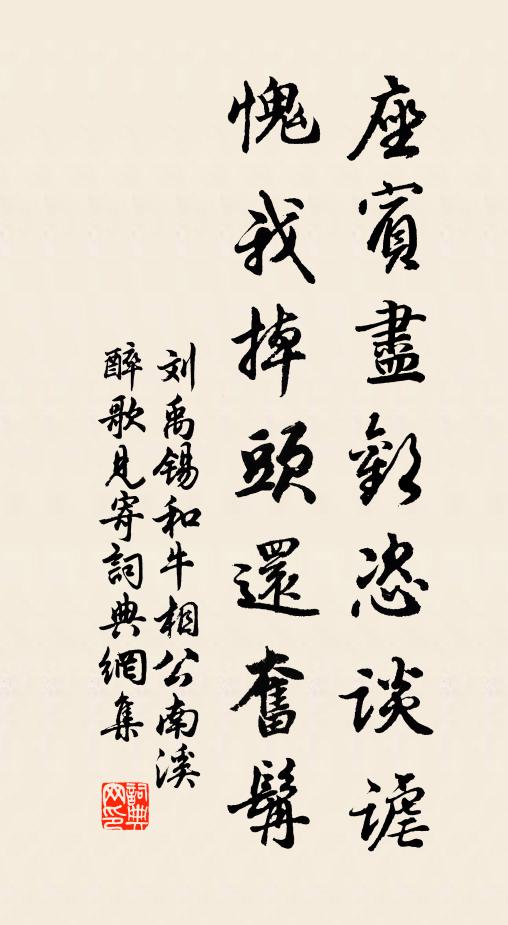 座賓盡歡恣談謔
愧我掉頭還奮髯
刘禹錫和牛相公南溪
醉歌見寄詞典網集
詞典
网印